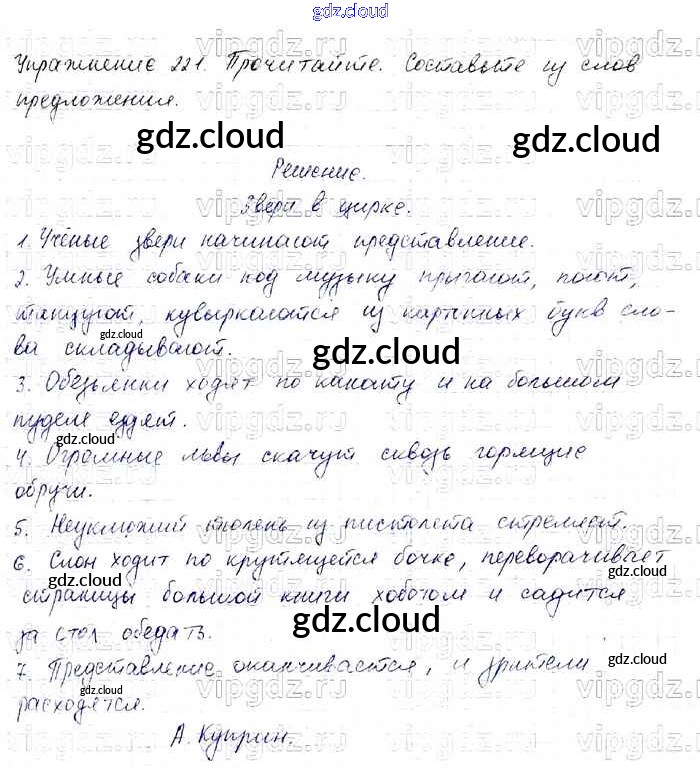 gdz.cloud
Упражнение 221. Прочитайте. Составьте из слов
предложения.
gdz.cloud
gdz.cloud
Решение.
Звери в цирке.
1. Учёные звери начинают представление.
2. Умные собаки под музыку прыгают, поют,
танцуют, кувыркаются из картонных букв сло-
gdz.cloud
ва складывают.
gdz.cloud
3. Обезьянки ходят по канату и на большом
пуделе ездят.
gdz.cloud
4. Огромные львы скачут сквозь горящие
gdz.cloud
обручи.
5. Неуклюжий тюлень из пистолета стреляет.
gdz.cloud
6. Слон ходит по крутящейся бочке, переворачивает
gdz.cloud
gdz.cloud
страницы большой книги хоботом и садится
gdz.cloud
за стол обедать.
7. Представление оканчивается, и зрители
gdz.cloud
gdz.cloud
расходятся.
А. Куприн.